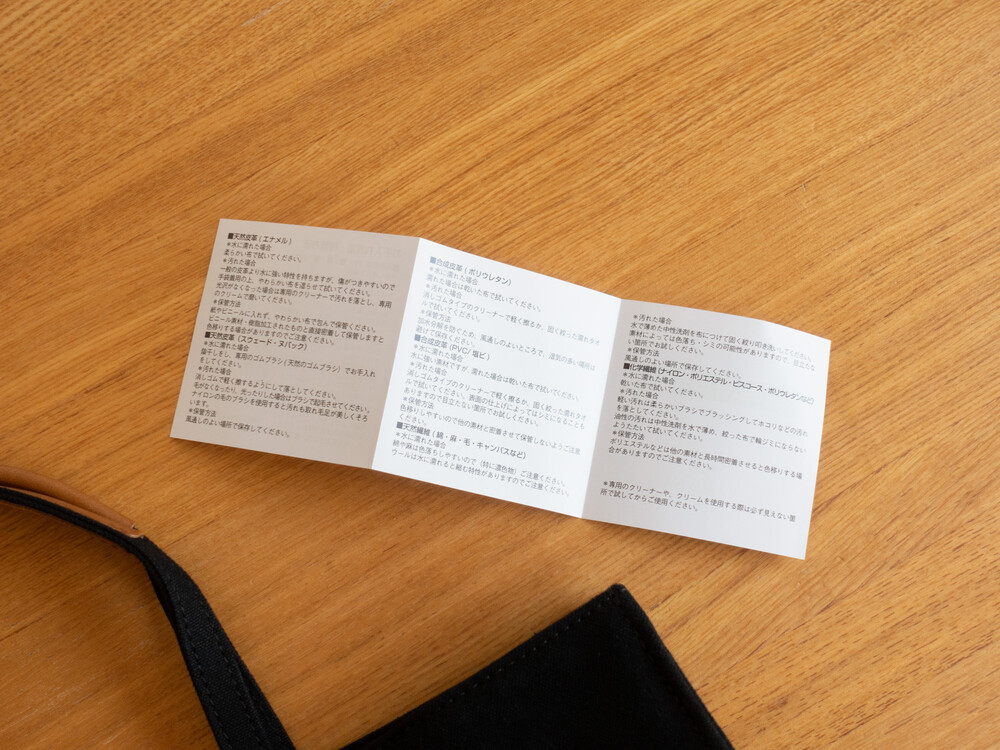 ■天然皮革（エナメル）
＊水に濡れた場合
柔らかい布で拭いてください。
＊汚れた場合
一般の皮革より水に強い特性を持ちますが、傷がつきやすいので
手袋着用の上、やわらかい布を湿らせて拭いてください。
光沢がなくなった場合は専用のクリーナーで汚れを落とし、専用
のクリームで磨いてください。
＊保管方法
紙やビニールに入れず、やわらかい布で包んで保管ください。
ビニール素材・樹脂加工されたものと直接密着して保管しますと
色移りする場合がありますのでご注意ください。
■天然皮革（スウェード・ヌバック）
＊水に濡れた場合
陰干しをし、専用のゴムブラシ（天然のゴムブラシ）でお手入れ
をしてください。
＊汚れた場合
消しゴムで軽く擦るようにして落としてください。
毛がなくなったり、光ったりした場合はブラシで起毛させてください。
ナイロンの毛のブラシを使用すると汚れも取れ毛足が美しくそろ
います。
＊保管方法
風通しのよい場所で保存してください。
■合成皮革（ポリウレタン）
＊水に濡れた場合
濡れた場合は乾いた布で拭いてください。
＊汚れた場合
消しゴムタイプのクリーナーで軽く擦るか、固く絞った濡れタオ
ルで拭いてください。
＊保管方法
加水分解を防ぐため、風通しのよいところで、湿気の多い場所は
避けて保存ください。
■合成皮革（PVC/ 塩ビ）
＊水に濡れた場合
水に強い素材ですが、濡れた場合は乾いた布で拭いてください。
＊汚れた場合
消しゴムタイプのクリーナーで軽く擦るか、固く絞った濡れタオ
ルで拭いてください。表面の仕上げによってはシミになることも
ありますので目立たない箇所でお試しください。
＊保管方法
色移りしやすいので他の素材と密着させて保管しないようご注意
ください。
■天然繊維（綿・麻・毛・キャンバスなど）
＊水に濡れた場合
綿や麻は色落ちしやすいので（特に濃色物）ご注意ください。
ウールは水に濡れると縮む特性がありますのでご注意ください。
＊汚れた場合
水で薄めた中性洗剤を布につけて固く絞り叩き洗いしてください。
素材によっては色落ち・シミの可能性がありますので、目立たな
い箇所でお試しください。
＊保管方法
風通しのよい場所で保存してください。
■化学繊維（ナイロン・ポリエステル・ビスコース・ポリウレタンなど）
＊水に濡れた場合
乾いた布で拭いてください。
＊汚れた場合
軽い汚れは柔らかいブラシでブラッシングしてホコリなどの汚れ
を落としてください。
油性の汚れは中性洗剤を水で薄め、絞った布で輪ジミにならない
ようたたいて拭いてください。
＊保管方法
ポリエステルなどは他の素材と長時間密着させると色移りする場
合がありますのでご注意ください。
＊専用のクリーナーや、クリームを使用する際は必ず見えない箇
所で試してからご使用ください。